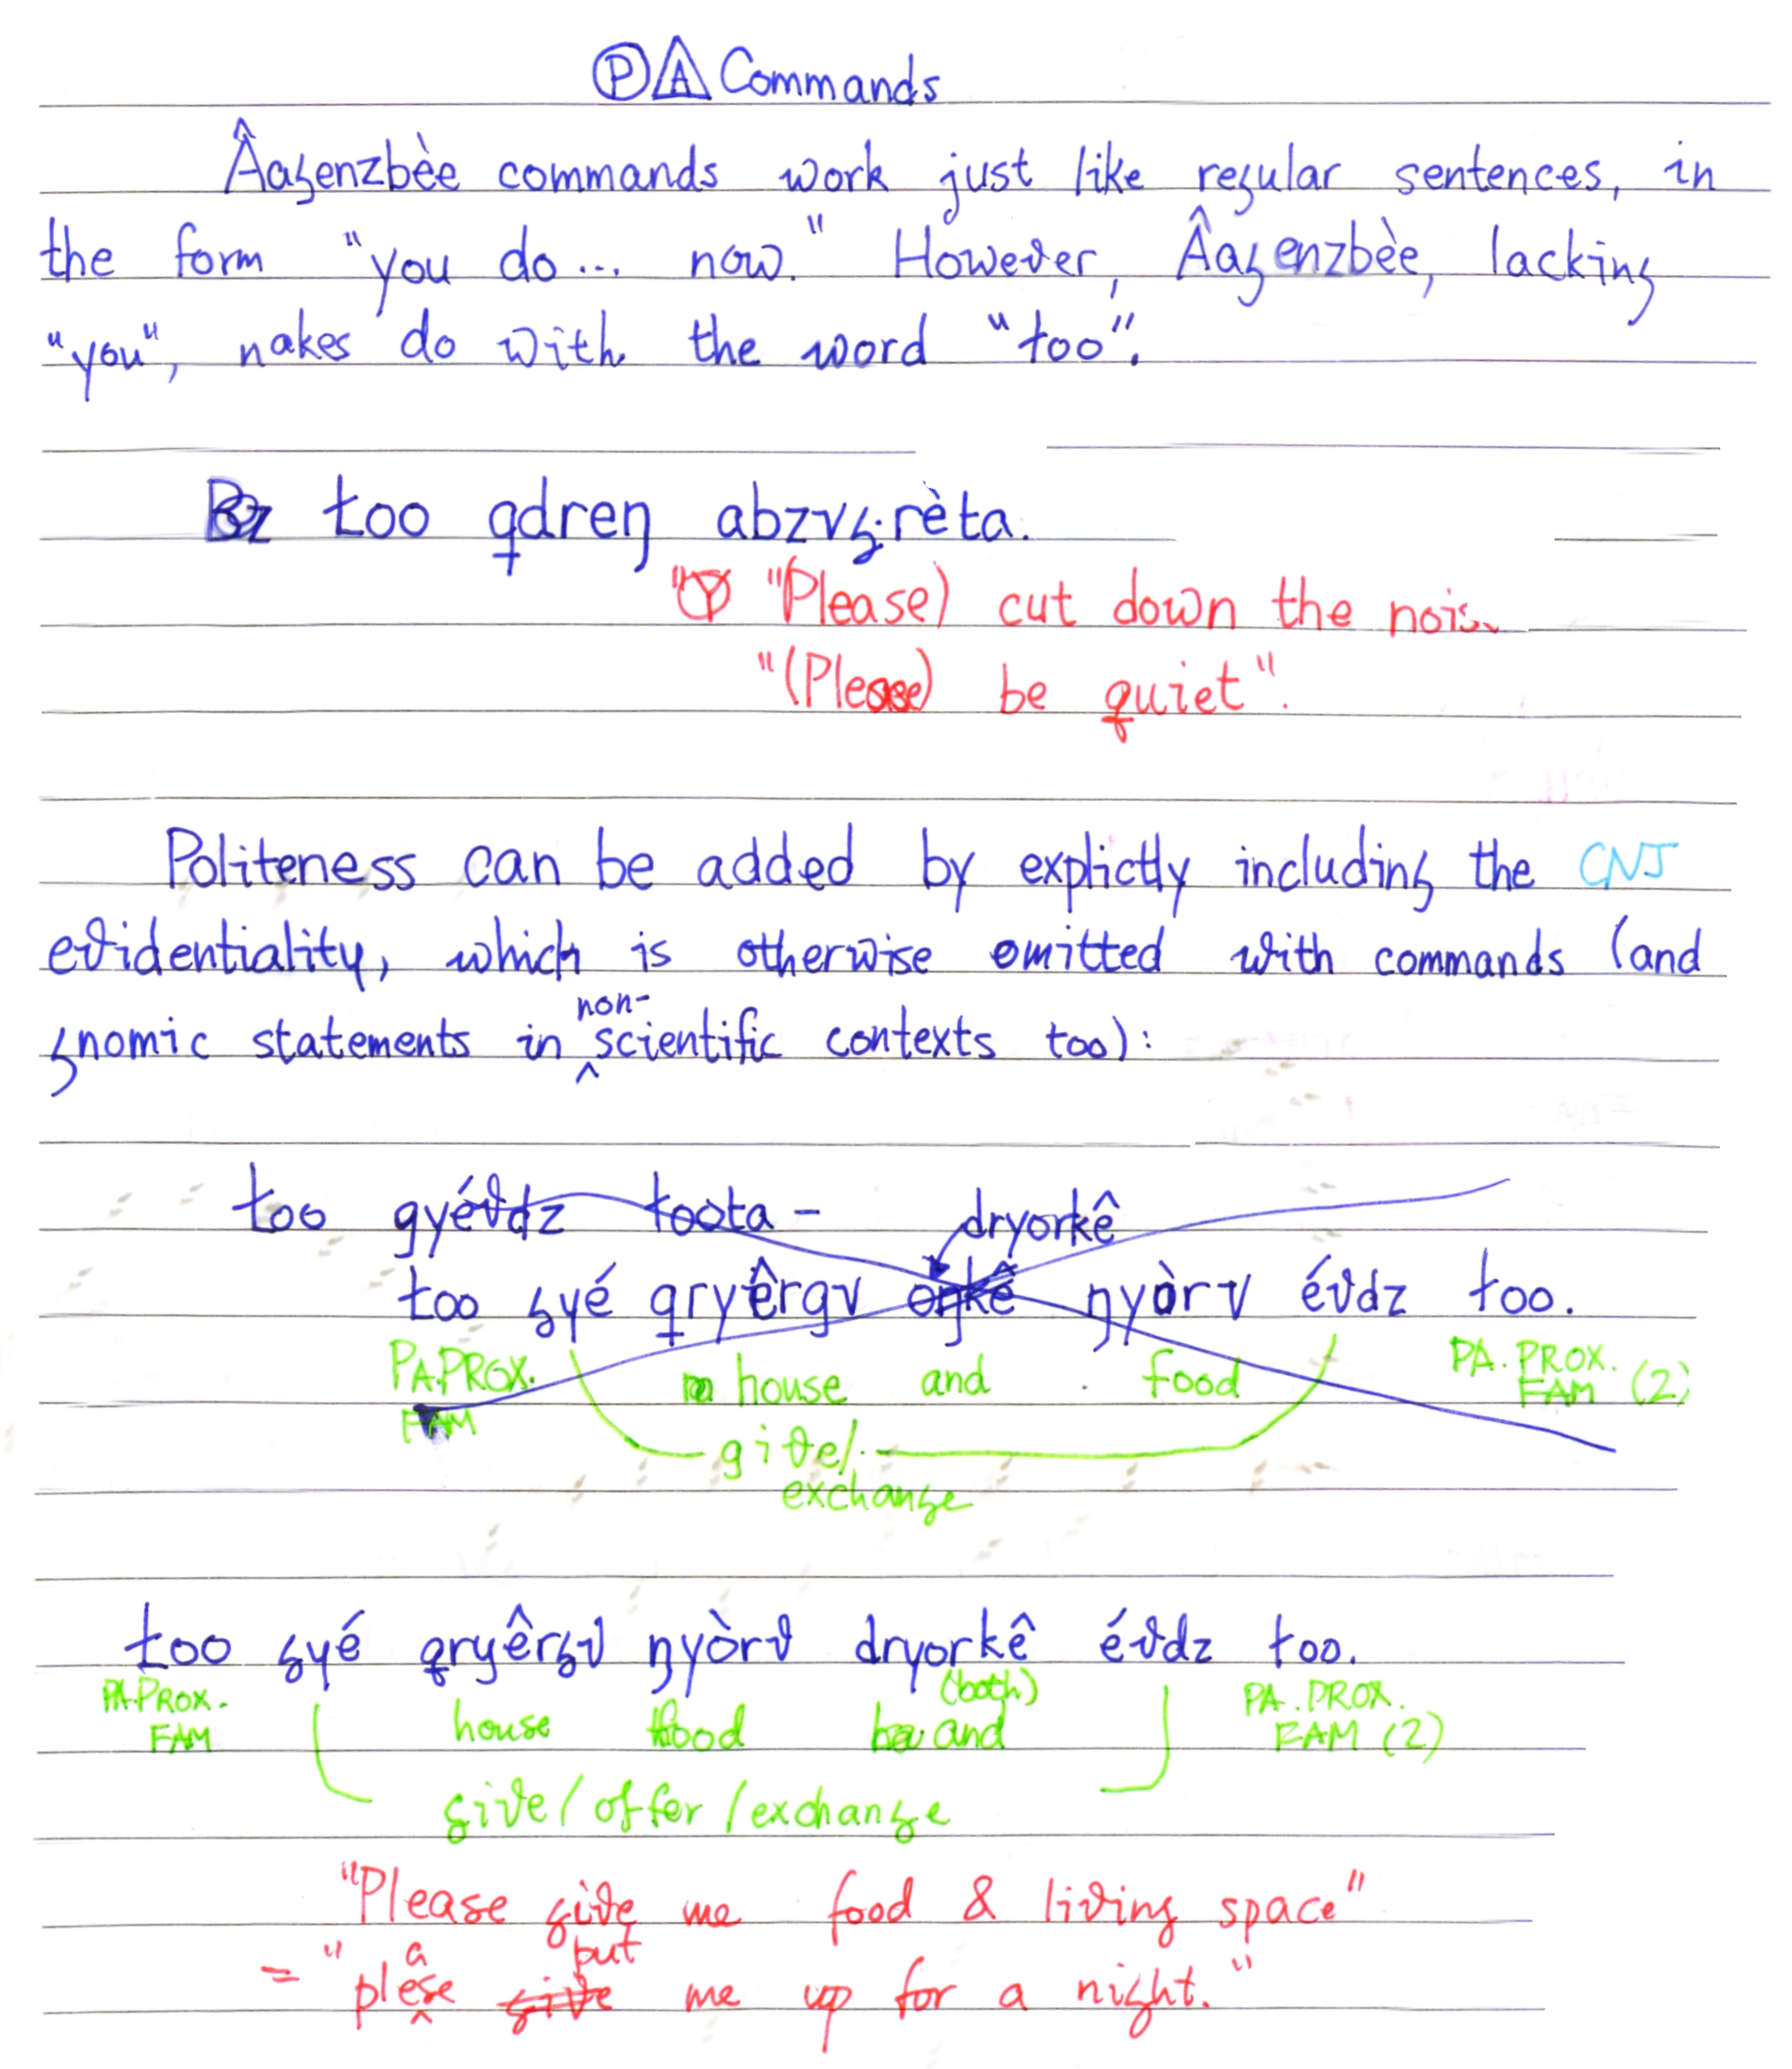 Ⓟ A Commands
Âagenzbèe commands work just like regular sentences, in
the form "you do... now." However, Âagenzbèe, lacking
"you", nakes do with the word "too".
too qdreŋ abzvg:rèta.
"Please) cut down the nois
"(Please) be quiet".
Politeness can be added by explictly including the CNJ
evidentiality, which is otherwise omitted with commands (and
non-
gnomic statements in ^ scientific contexts too):
too gyévdz toota -
dryorkê
too gyé qryêrgv ŋyòrv évdz too.
PA.PROX. house and food PA.PROX.
FAM FAM (2)
give/
exchange
too gyé qryêrgv ŋyòrv dryorkê évdz too.
PA.PROX. (both) PA.PROX.
FAM house food and FAM (2)
give/offer/exchange
"Please give me food & living space"
a put
= "plese give me up for a night."